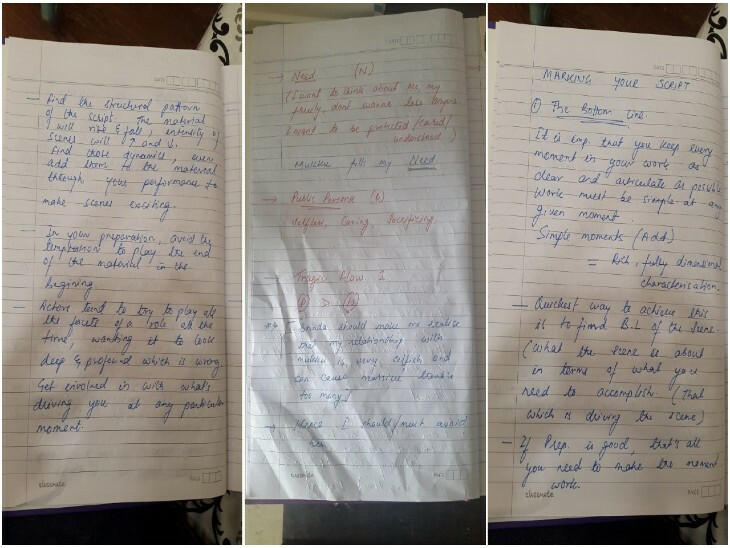 — Find the structural pattern
of the script. The material
will rise & fall, intensity of
scenes will ↑ and ↓.
Find those dynamics, even
add them to the material
through your performance to
make scenes exciting.
— In your preparation, avoid the
temptation to play the end
of the material in the
Begining
— Actors tend to try to play all
the facets of a role all the
time, wanting it to look
deep & profound which is wrong
Get involved in with what's
driving you at any particular
moment.
classmate
PAGE
DATE
→ Need (N)
(I want to think about me, my
family, dont wanna
I want to be protected/cared/
understood)
fills my Need
→ Public Persona (P)
Selfless, Caring, Sacrificing
Tragic Flaw 1
(P) > (N)
should make me realise
that my relationship with
is very selfish and
can cause massive trouble
too many.
→ Hence I should/must avoid
her.
classmate
PAGE
DATE
MARKING YOUR SCRIPT
① The Bottom Line.
It is imp. that you keep every
moment in your work as
clear and articulate as possible
Work must be simple at any
given moment.
Simple moments (Add)
= Rich, fully dimensional
characterisation.
— Quickest way to achieve this
is to find B.L of the scene.
(What the scene is about
in terms of what you
need to accomplish. (That
which is driving the scene)
— If Prep. is good, that's all
you need to make the moment
work.
classmate
PAGE